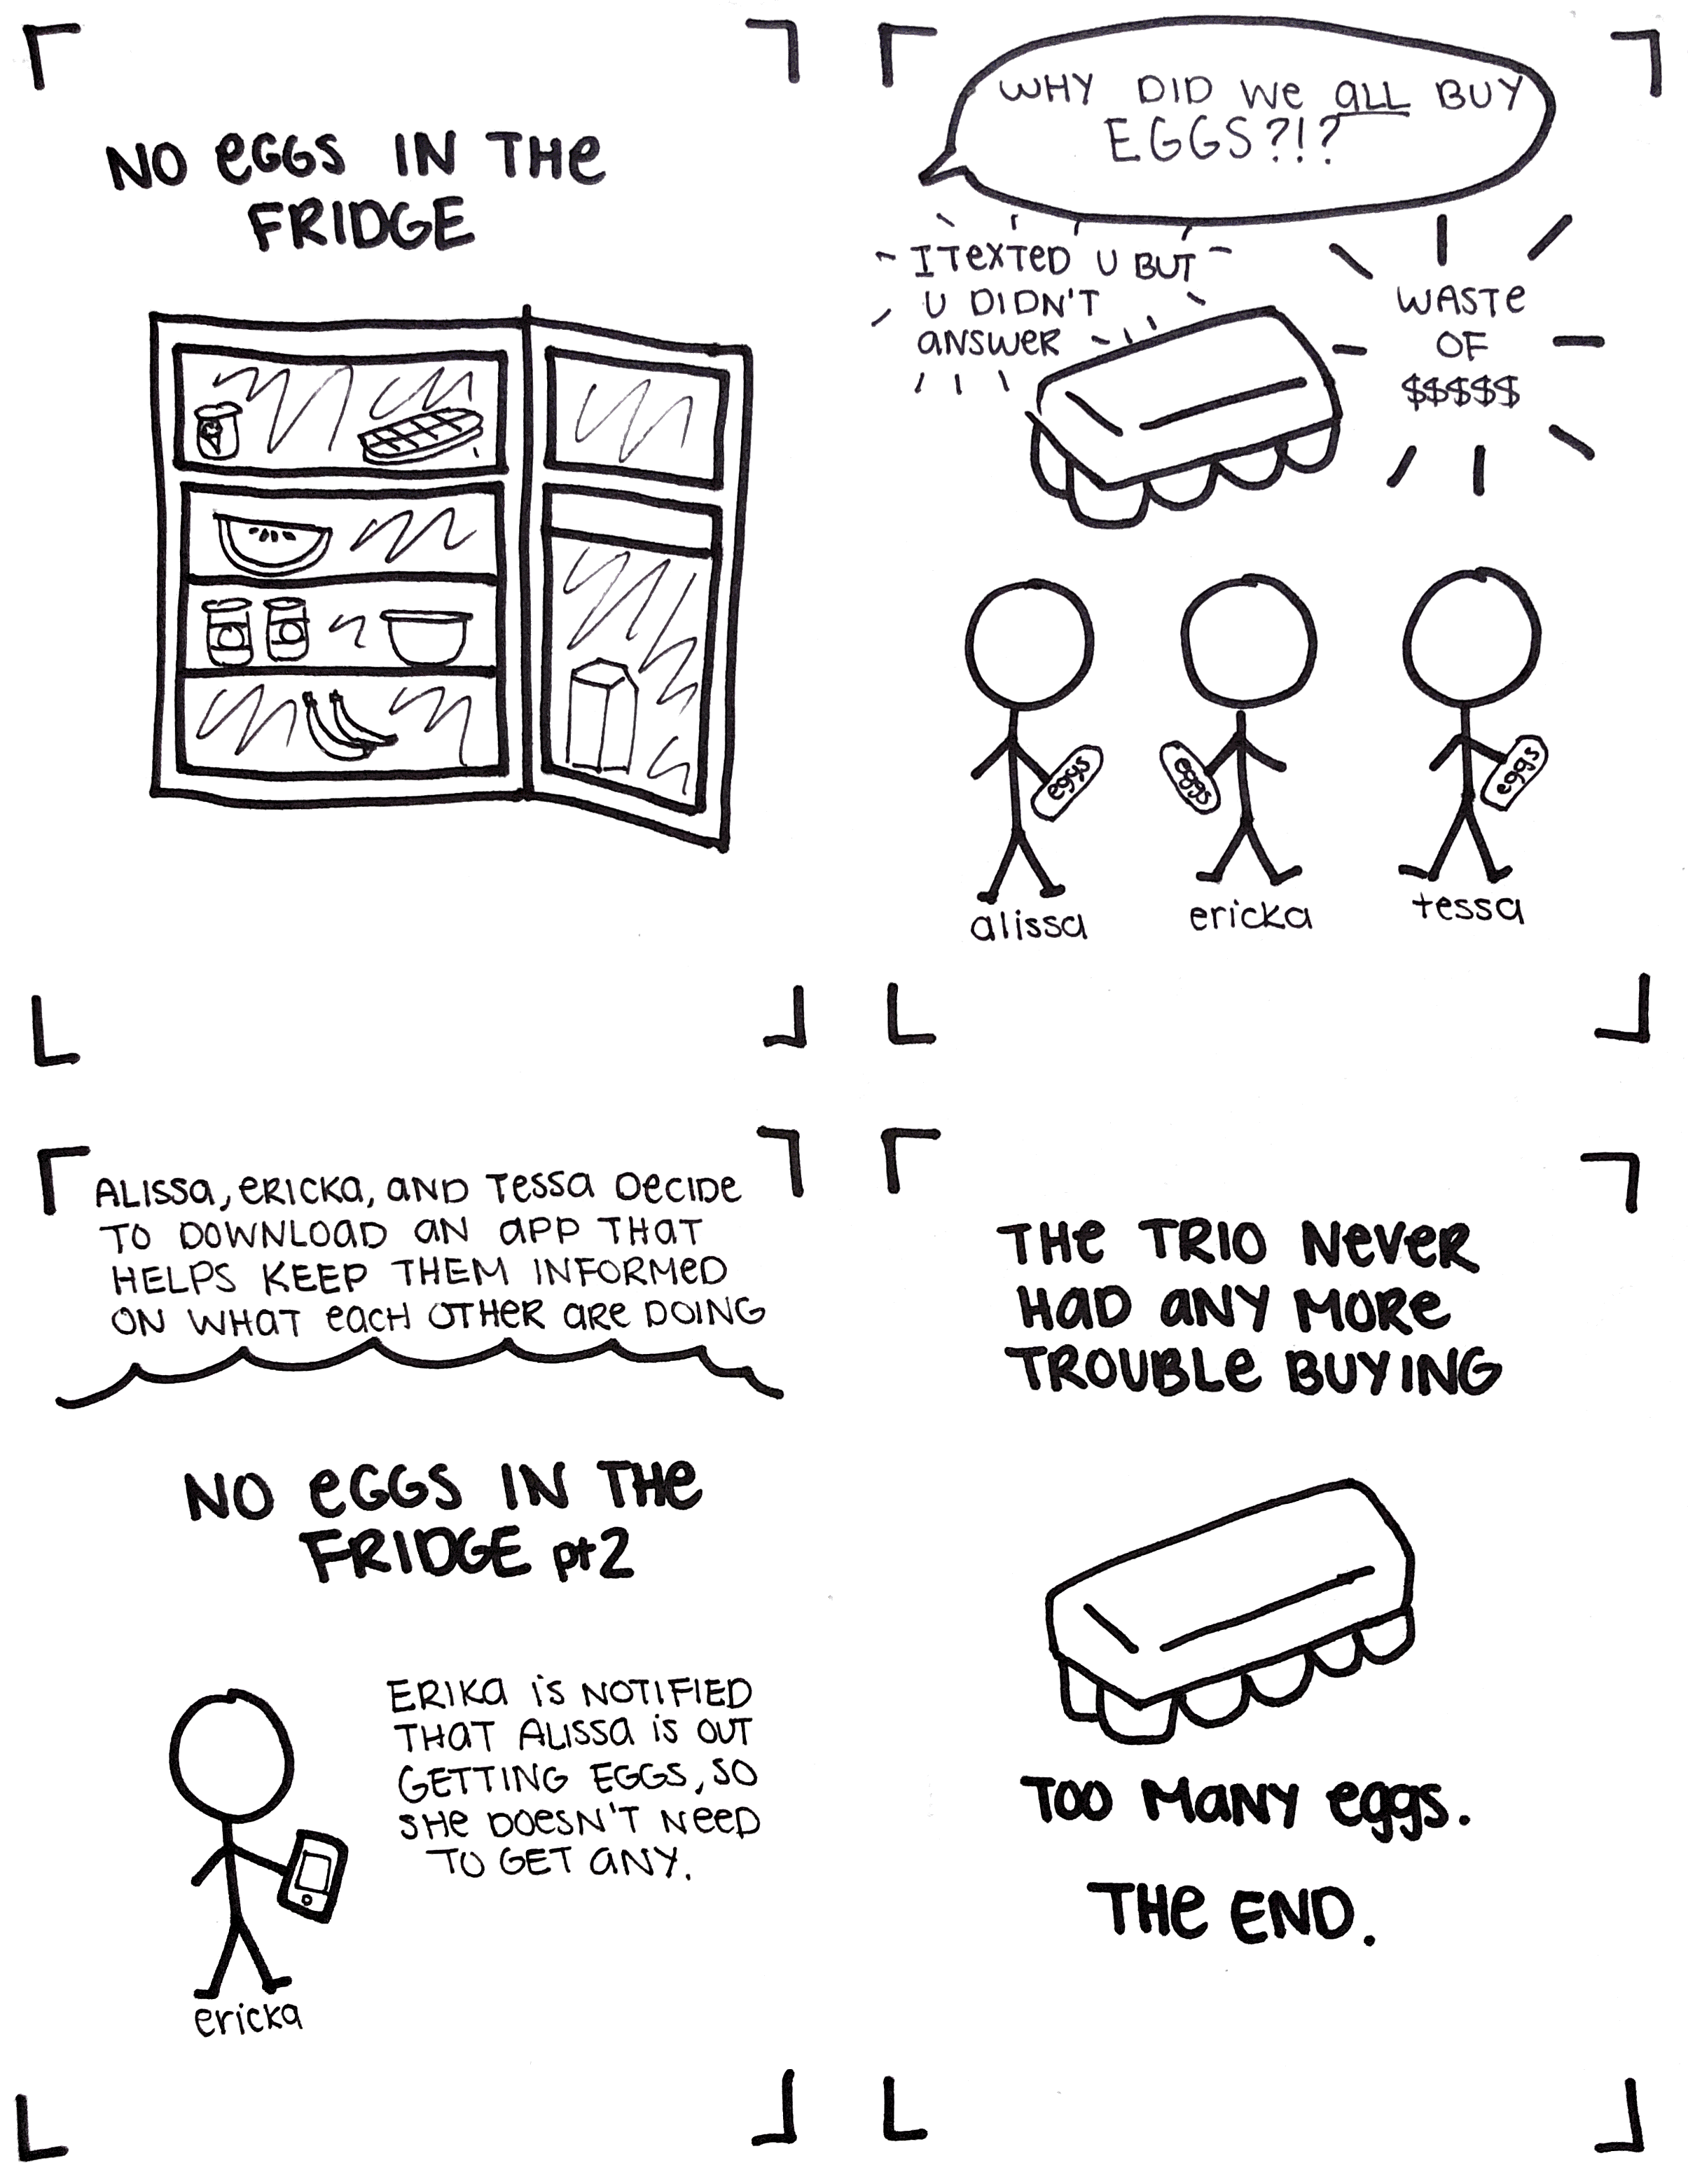 NO eGGS IN THe
FRIDGE
WHY DID We aLL BUY
EGGS?!?
I TexTeD U BUT
U DIDN'T
aNSWeR
WaSTe
OF
$$$$$
eggs
eggs
eggs
alissa
ericka
tessa
ALISSa, eRICKa, aND TeSSa DeCIDe
TO DOWNLOAD aN aPP THaT
HELPS KEEP THEM INFORMeD
ON WHaT eacH OTHeR aRe DOING
NO eGGS IN THe
FRIDGE pt2
ERIKa iS NOTIFIED
THAT ALISSa iS OUT
GETTING EGGS, SO
SHe DOeSN'T NeeD
TO GET aNY.
ericka
THe TRIO NeVeR
HaD aNY MORe
TROUBLe BUYING
TOO MaNY eggs.
THe END.